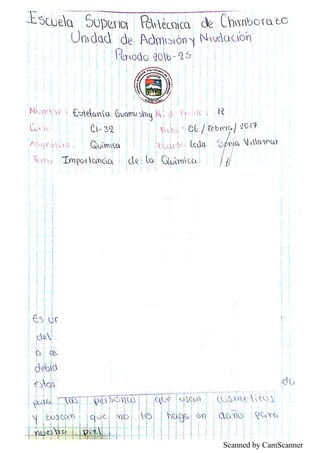 Escuela Superior Politécnica de Chimborazo
Unidad de Admisión y Nivelación
Periodo 2016-2S
Nombre: Estefanía Guamushig N: d 12
Curso: CI-32 Fecha: 06/Febrero/2017
Asignatura: Química Docente: Lcda Sonia Villamar
Tema: Importancia de la Química
Es un
del
a
debid
estos de
para las personas que usan cosmeticos
y buscan que no les haga un daño para
nuestro piel
Scanned by CamScanner